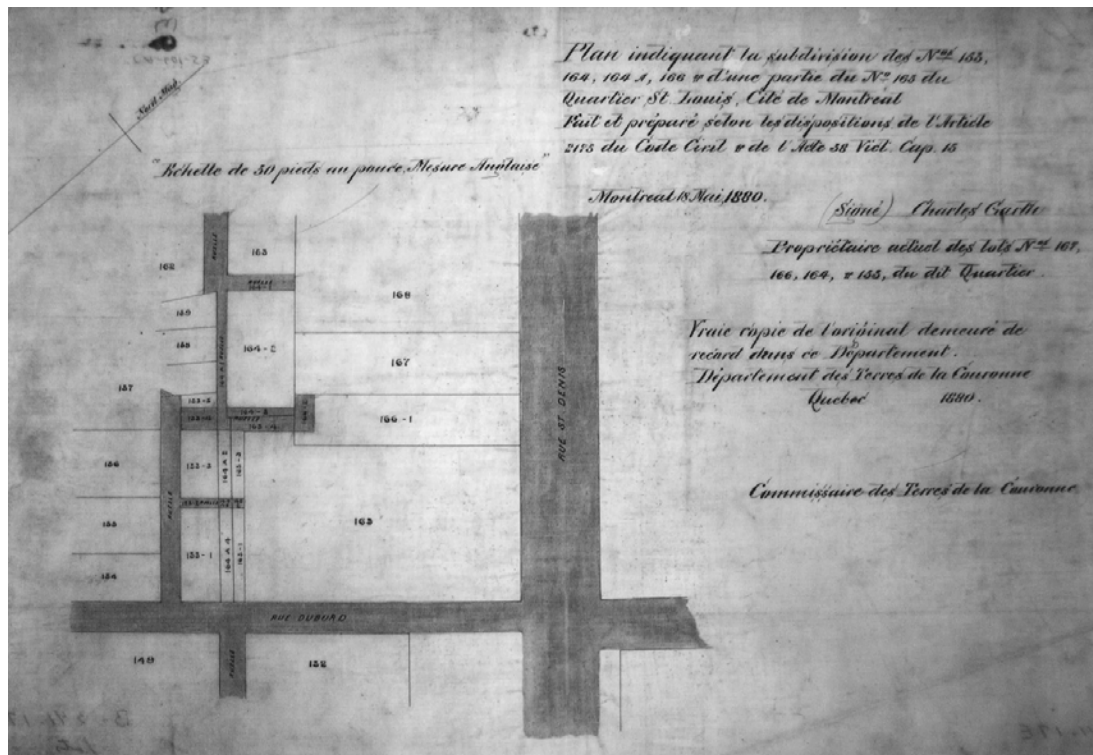 Plan indiquant la subdivision des Nos 153,
164, 164 A, 166 & d'une partie du No 165 du
Quartier St. Louis, Cité de Montréal
Fait et préparé selon les dispositions de l'Article
2175 du Code Civil & de l'Acte 38 Vict. Cap. 15
"Echelle de 50 pieds au pouce, Mesure Anglaise"
Montreal 18 Mai, 1880.
(Signé) Charles Garth
Propriétaire actuel des lots Nos 167,
166, 164, & 153, du dit Quartier.
Vraie copie de l'original demeuré de
record dans ce Département.
Département des Terres de la Couronne
Quebec 1880.
Commissaire des Terres de la Couronne
162
RUELLE
163
RUELLE
164-1
159
158
164-2
168
167
157
RUELLE
166-1
RUE ST. DENIS
156
153-3
164 A 2
165-3
RUELLE
165
155
153-1
164 A 4
165-1
154
RUE DUBORD
149
RUELLE
152